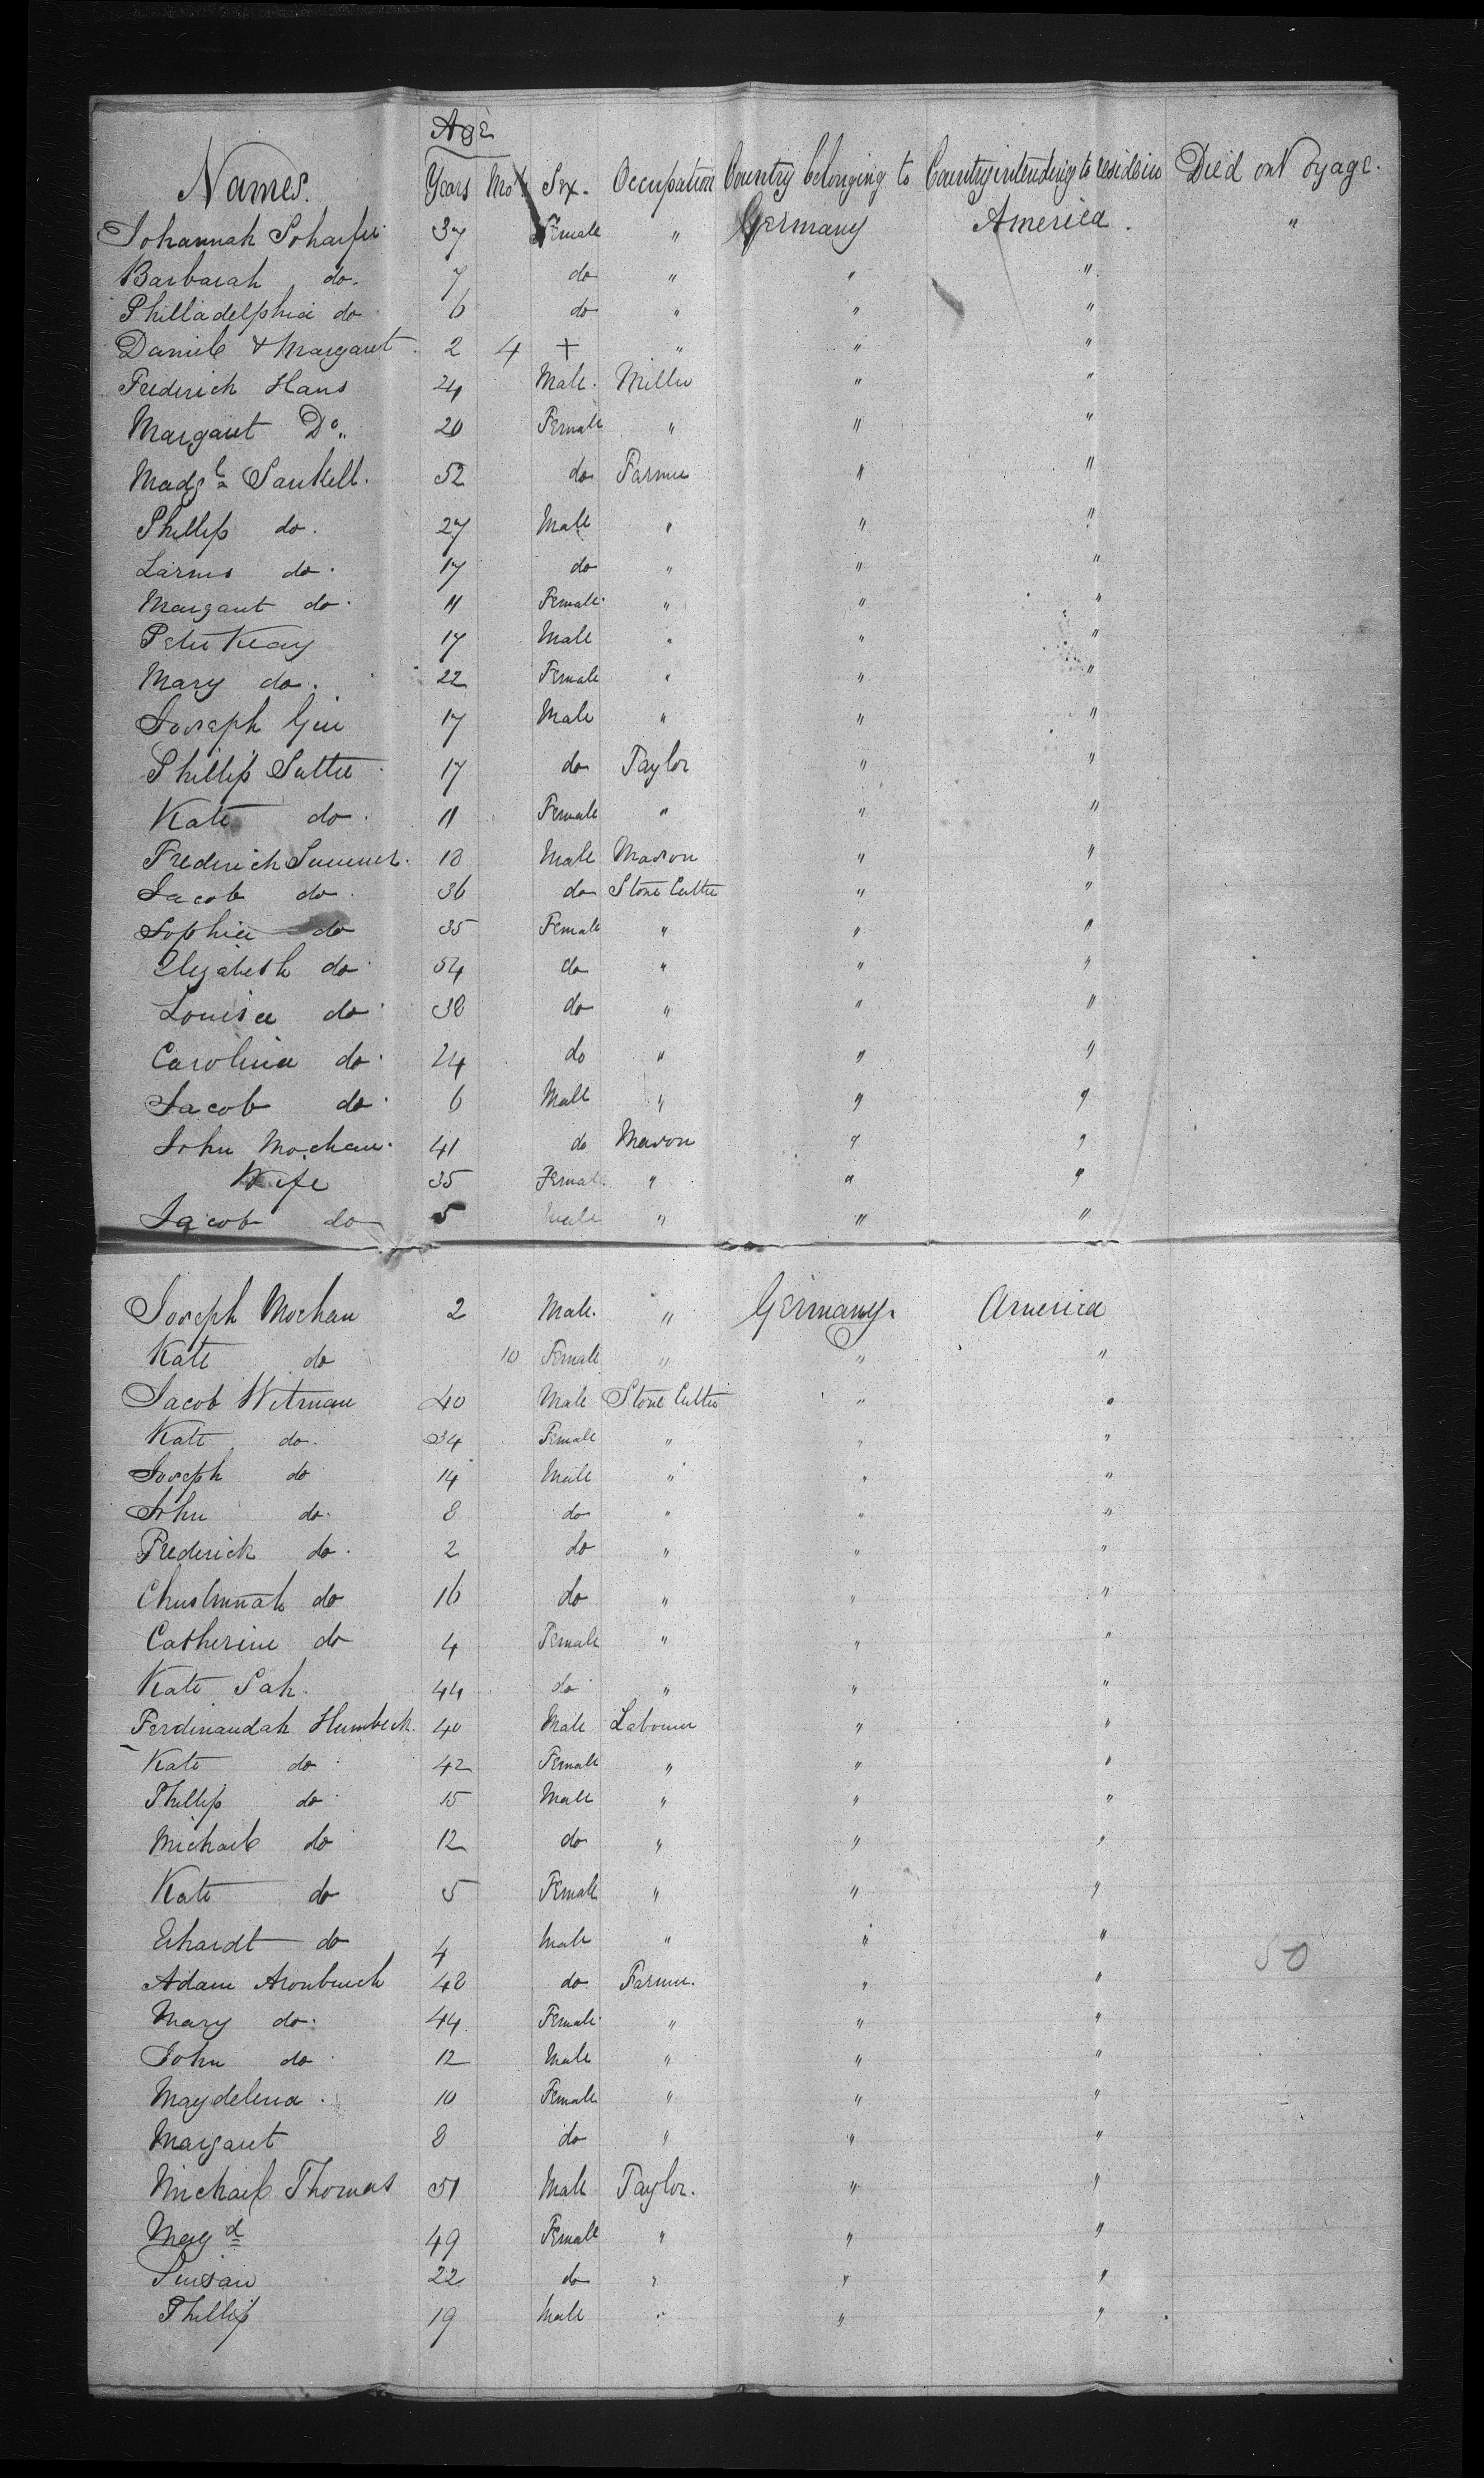 Age
Names. Years Mos. Sex. Occupation Country belonging to Country intending to reside in Died on Voyage.
Johannah Scharfer 37 Female " Germany America. "
Barbarah do. 7 do " " "
Philladelphia do 6 do " " "
Daniel & Margaret. 2 4 + " " "
Frederick Hans 24 Male. Miller " "
Margaret Do. 20 Female " " "
52 do Farmer " "
Phillip do. 27 Male " " "
do. 17 do " " "
Margaret do. 11 Female. " " "
Peter 17 Male " " "
Mary do. 22 Female " " "
Joseph 17 Male " " "
Phillip 17 do Taylor " "
Kate do. 11 Female " " "
Frederick 18 Male Mason " "
Jacob do. 36 do Stone Cutter " "
Sophia do 35 Female " " "
Elizabeth do. 54 do " " "
Louisa do. 30 do " " "
Carolina do. 24 do " " "
Jacob do. 6 Male " " "
John Mochan. 41 do Mason " "
Wife 35 Female. " " "
Jacob do 5 Male " " "
Joseph Mochan 2 Male. " Germany. America
Kate do 10 Female " " "
Jacob Witman 40 Male Stone Cutter " "
Kate do. 34 Female " " "
Joseph do 14 Male " " "
John do. 8 do " " "
Frederick do. 2 do " " "
do 16 do " " "
Catherine do 4 Female " " "
Kate Sah. 44 do " " "
Ferdinandah Humbeck. 40 Male Labourer " "
Kate do 42 Female " " "
Phillip do. 15 Male " " "
Michael do 12 do " " "
Kate do 5 Female " " "
Erhardt do 4 Male " " "
50
Adam 48 do Farmer. " "
Mary do. 44 Female. " " "
John do. 12 Male " " "
Maydelena. 10 Female " " "
Margaret 8 do " " "
Michael Thomas 51 Male Taylor. " "
Magd 49 Female " " "
Susan 22 do " " "
Phillip 19 Male " " "